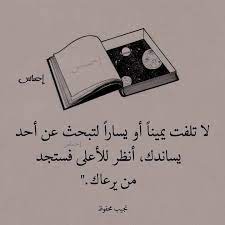 إحساس
لا تلفت يميناً أو يساراً لتبحث عن أحد
يساندك، أنظر للأعلى فستجد
من يرعاك."
نجيب محفوظ